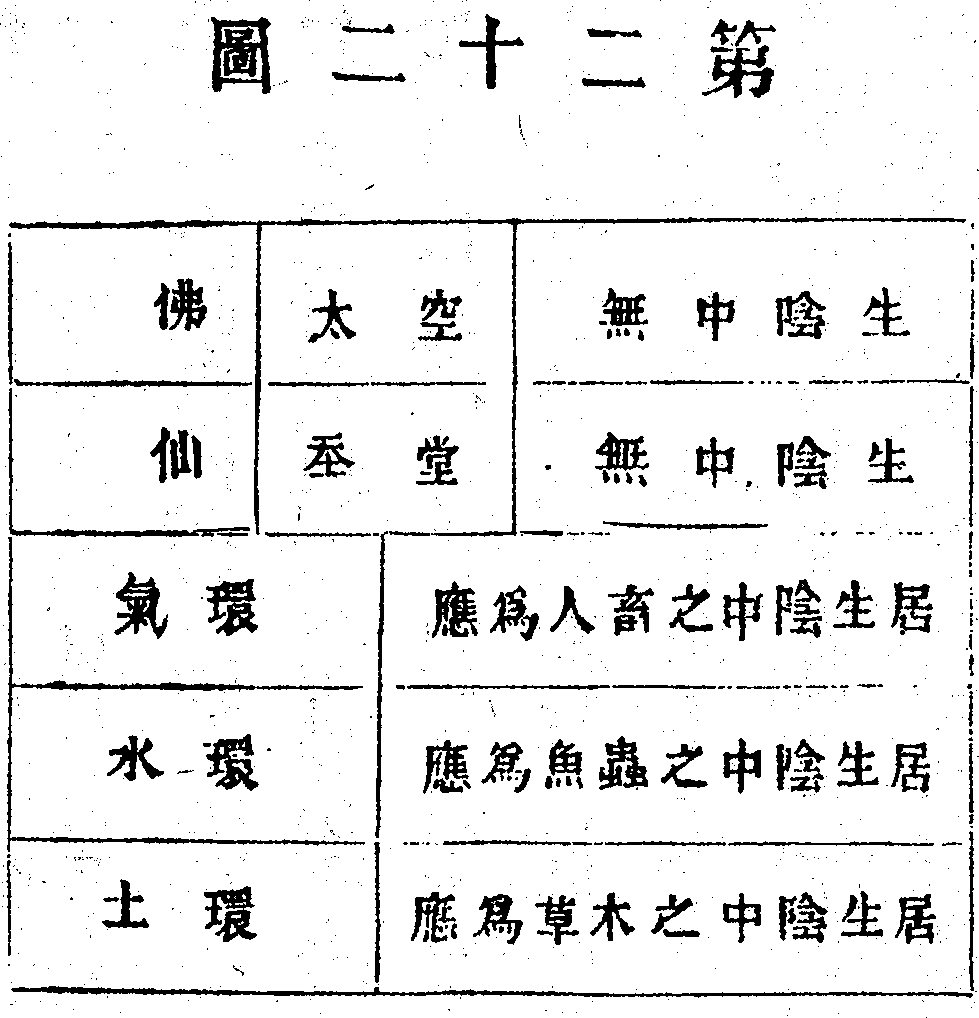 第二十二圖
佛 太空 無中陰生
仙 堂 無中陰生
氣環 應爲人畜之中陰生居
水環 應爲魚蟲之中陰生居
土環 應爲草木之中陰生居